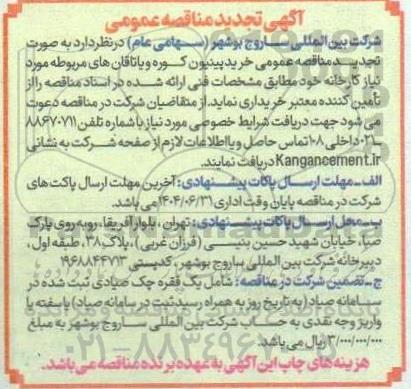 آگهی تجدید مناقصه عمومی
شرکت بین المللی ساروج بوشهر (سهامی عام) در نظر دارد به صورت
تجدید مناقصه عمومی خرید پینیون کوره و یاتاقان های مربوطه مورد
نیاز کارخانه خود مطابق مشخصات فنی ارائه شده در اسناد مناقصه را از
تأمین کننده معتبر خریداری نماید. از متقاضیان شرکت در مناقصه دعوت
می شود جهت دریافت شرایط خصوصی مورد نیاز با شماره تلفن ۸۸۶۷۰۷۱۱
-۰۲۱ داخلی ۱۰۸ تماس حاصل و یا اطلاعات لازم از صفحه شرکت به نشانی
Kangancement.ir دریافت نمایند.
الف-مهلت ارسال پاکات پیشنهادی: آخرین مهلت ارسال پاکت های
شرکت در مناقصه پایان وقت اداری ۱۴۰۴/۰۶/۳۱ می باشد.
ب-محل ارسال پاکات پیشنهادی: تهران، بلوار آفریقا، روبه روی پارک
صبا، خیابان شهید حسین بنیسی (فرزان غربی)، پلاک ۳۸، طبقه اول،
دبیرخانه شرکت بین المللی ساروج بوشهر، کدپستی ۱۹۶۸۸۴۴۷۱۳
ج-تضمین شرکت در مناقصه: شامل یک فقره چک صیادی ثبت شده در
سامانه صیاد (به تاریخ روز به همراه رسید ثبت در سامانه صیاد) یا سفته یا
واریز وجه نقدی به حساب شرکت بین المللی ساروج بوشهر به مبلغ
۳/۰۰۰/۰۰۰/۰۰۰ ریال می باشد.
هزینه های چاپ این آگهی به عهده برنده مناقصه می باشد.